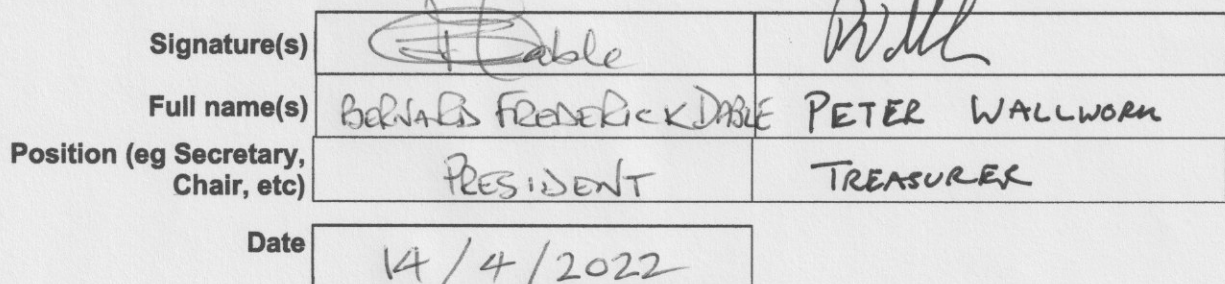 Signature(s) Dable
Full name(s) BERNARD FREDERICK DABLE PETER WALLWORK
Position (eg Secretary, Chair, etc) PRESIDENT TREASURER
Date 14/4/2022